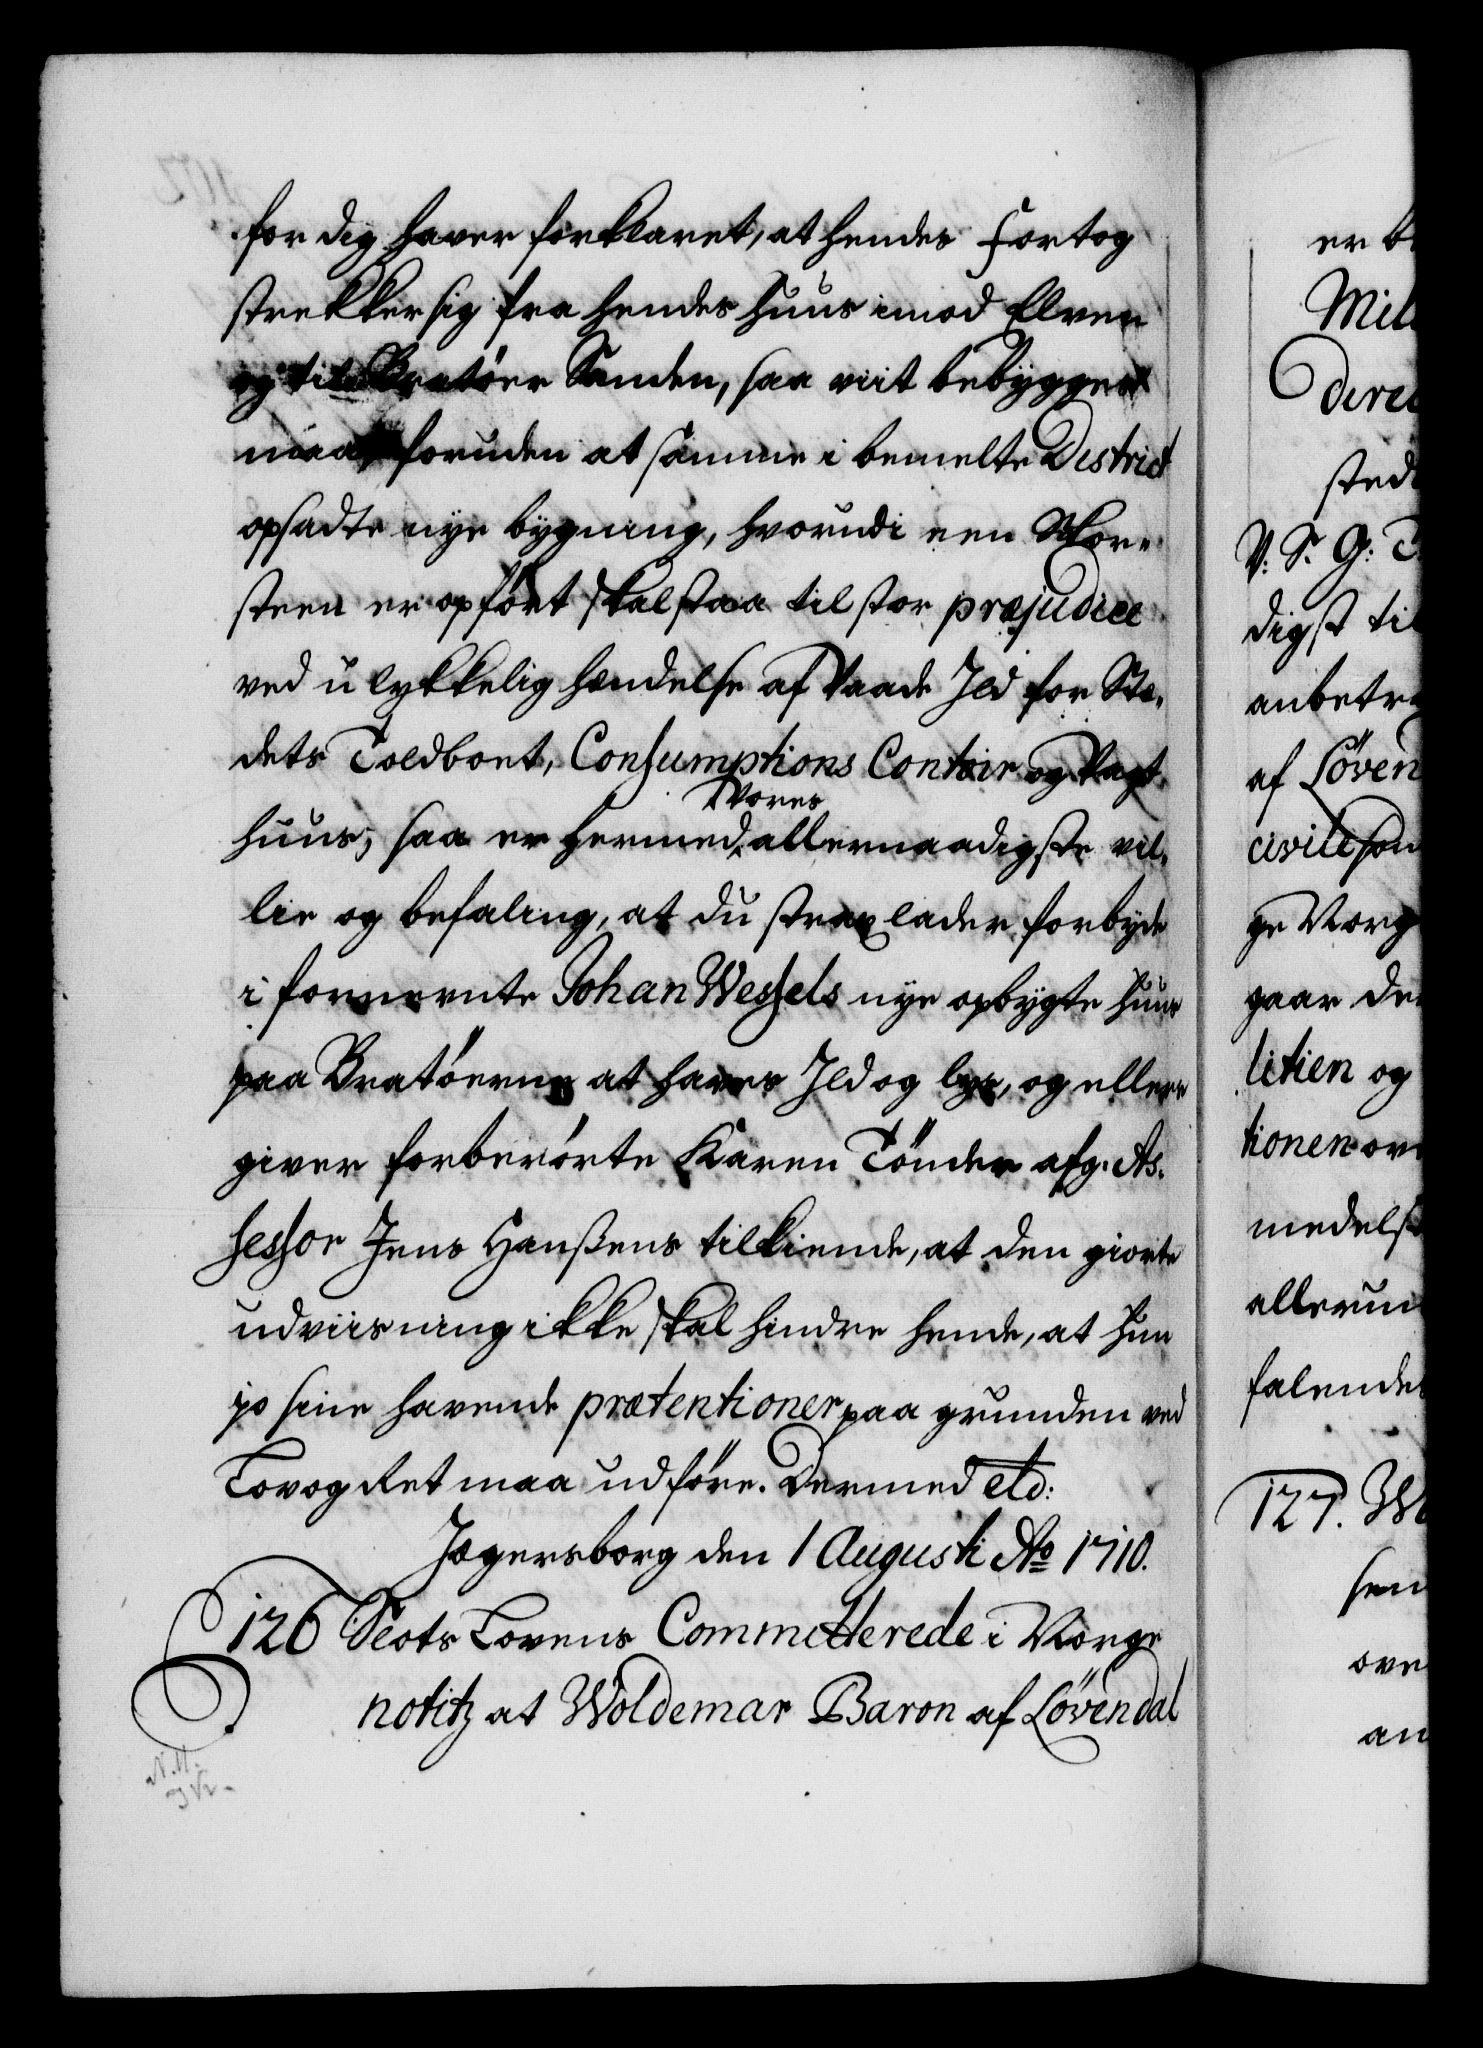 for dig haver forklaret, at hendes Fortog
strekker sig fra hendes huus imod Elven
og til Bratöer Sanden, saa viit bebygges
maa, foruden at samme i bemelte District
opsadte nye bygning, hvorudi een Skor-
steen er opfört skal staa til stor præjudice
ved ulykkelig hændelse af Vaade Ild for Stæ-
dets Toldboet, Consumptions Contoir og Vagt
huus; saa er hermed Vores allernaadigste vil-
lie og befaling, at du strax lader forbyde
i fornevnte Johan Wessels nye opbygte huus
paa Bratöerne at haves Ild og lys, og ellers
giver forberörte Karen Tönder afg. As-
sessor Jens Hanßens tilkiende, at den giorte
udviisning ikke skal hindre hende, at hun
jo sine havende prætentioner paa grunden ved
Lov og Ret maa udföre. Dermed etc:
Jægersborg den 1 Augusti Ao 1710.
126 Slots Lovens Committerede i Norge
notitz at Woldemar Baron af Lövendal
er
Mil
direc
sted
V: S. G: T
digst til
anbetr
af Löven
civile som
ge Norg
gaar de
litien og
tionen ov
medelst
allerun
falende
127. W
sen
ove
an